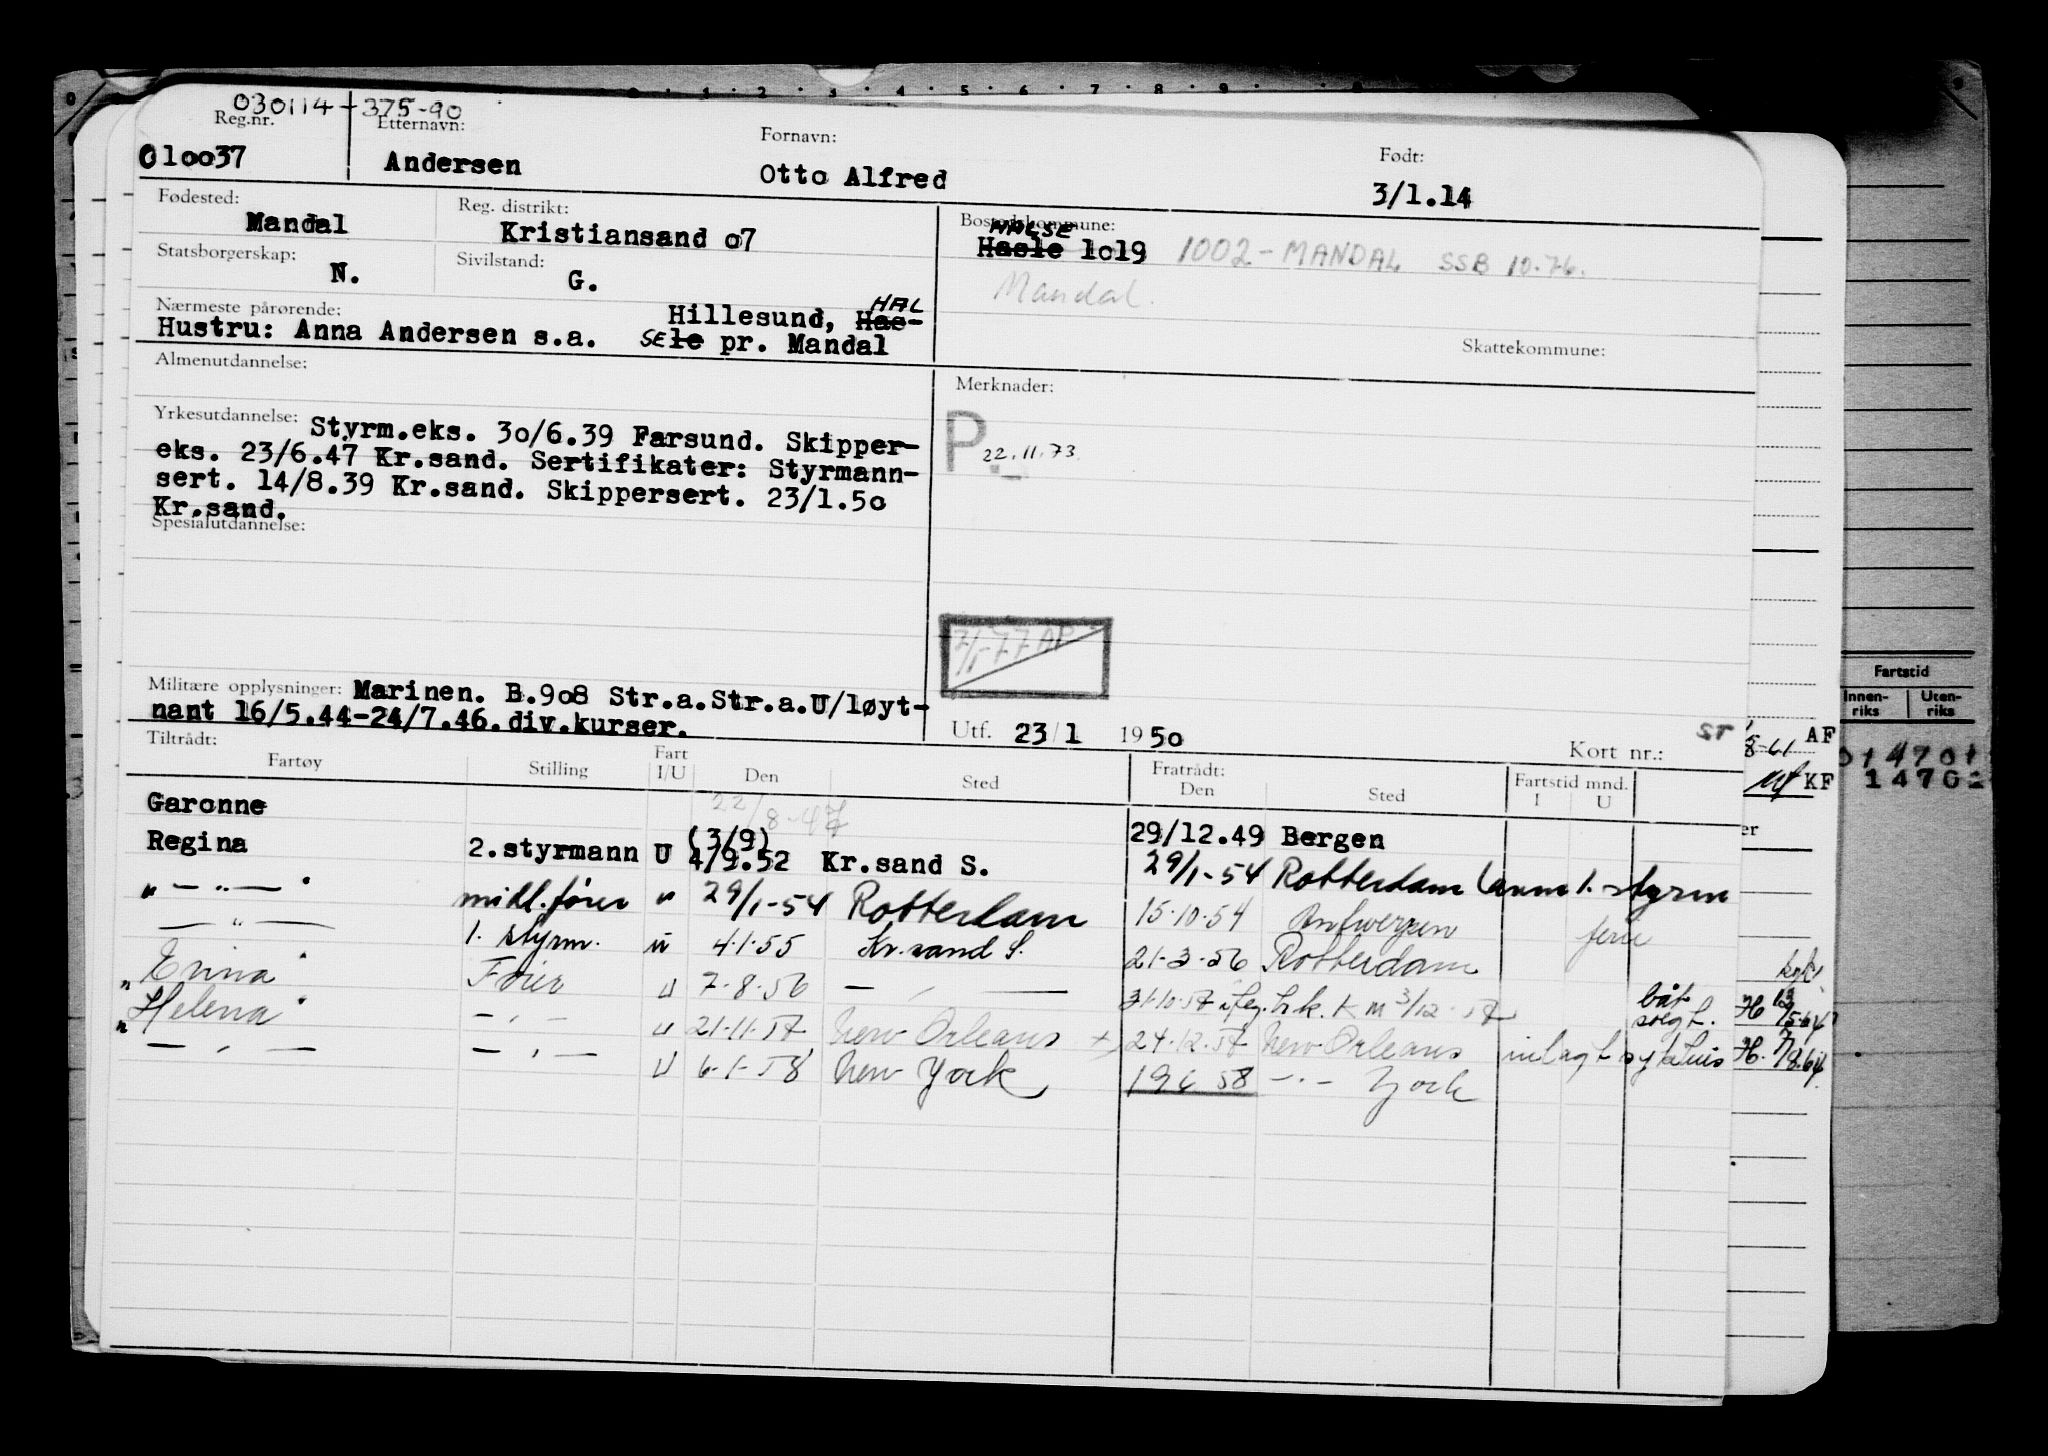 030114-375-90
Reg.nr. Etternavn: Fornavn: Født:
010037 Andersen Otto Alfred 3/1.14
Fødested: Reg. distrikt: Bostedskommune:
Mandal Kristiansand o7 HALSE Hasle 1o19 1002-MANDAL SSB 10.76.
Statsborgerskap: Sivilstand:
N. G. Mandal.
Nærmeste pårørende: Hillesund, Has- HAL
Hustru: Anna Andersen s.a. SE le pr. Mandal
Skattekommune:
Almenutdannelse: Merknader:
Yrkesutdannelse: Styrm.eks. 3o/6.39 Farsund. Skipper-
eks. 23/6.47 Kr.sand. Sertifikater: Styrmann-
sert. 14/8.39 Kr.sand. Skippersert. 23/1.5o
Kr.sand.
P. 22.11.73
Spesialutdannelse:
77 AP
Militære opplysninger: Marinen. B.9o8 Str.a.Str.a.U/løyt-
nant 16/5.44-24/7.46.div.kurser.
Utf. 23/1 195o Kort nr.: ST
Tiltrådt: Fratrådt:
Fartøy Stilling Fart I/U Den Sted Den Sted Fartstid mnd. I U
Garonne 22/8-47 29/12.49 Bergen
Regina 2.styrmann U (3/9) 4/9.52 Kr.sand S. 29/1-54 Rotterdam 1. styrm
" — " — " " 29/1-54 Rotterdam 15.10.54 Antwerpen ferie
— " — 1. styrm. u 4.1.55 Kr.sand S. 21.3.56 Rotterdam
" Erina " Fører u 7.8.56 — " — 31.10.57 3/12.57 båt solgt.
" Helena " — " — u 21.11.57 New Orleans 24.12.57 New Orleans innlagt sykehus
— " — — " — u 6.1.58 New York 19 6 58 — " — York
Fartstid
Innen- Uten-
riks riks
AF
KF
14701
1470